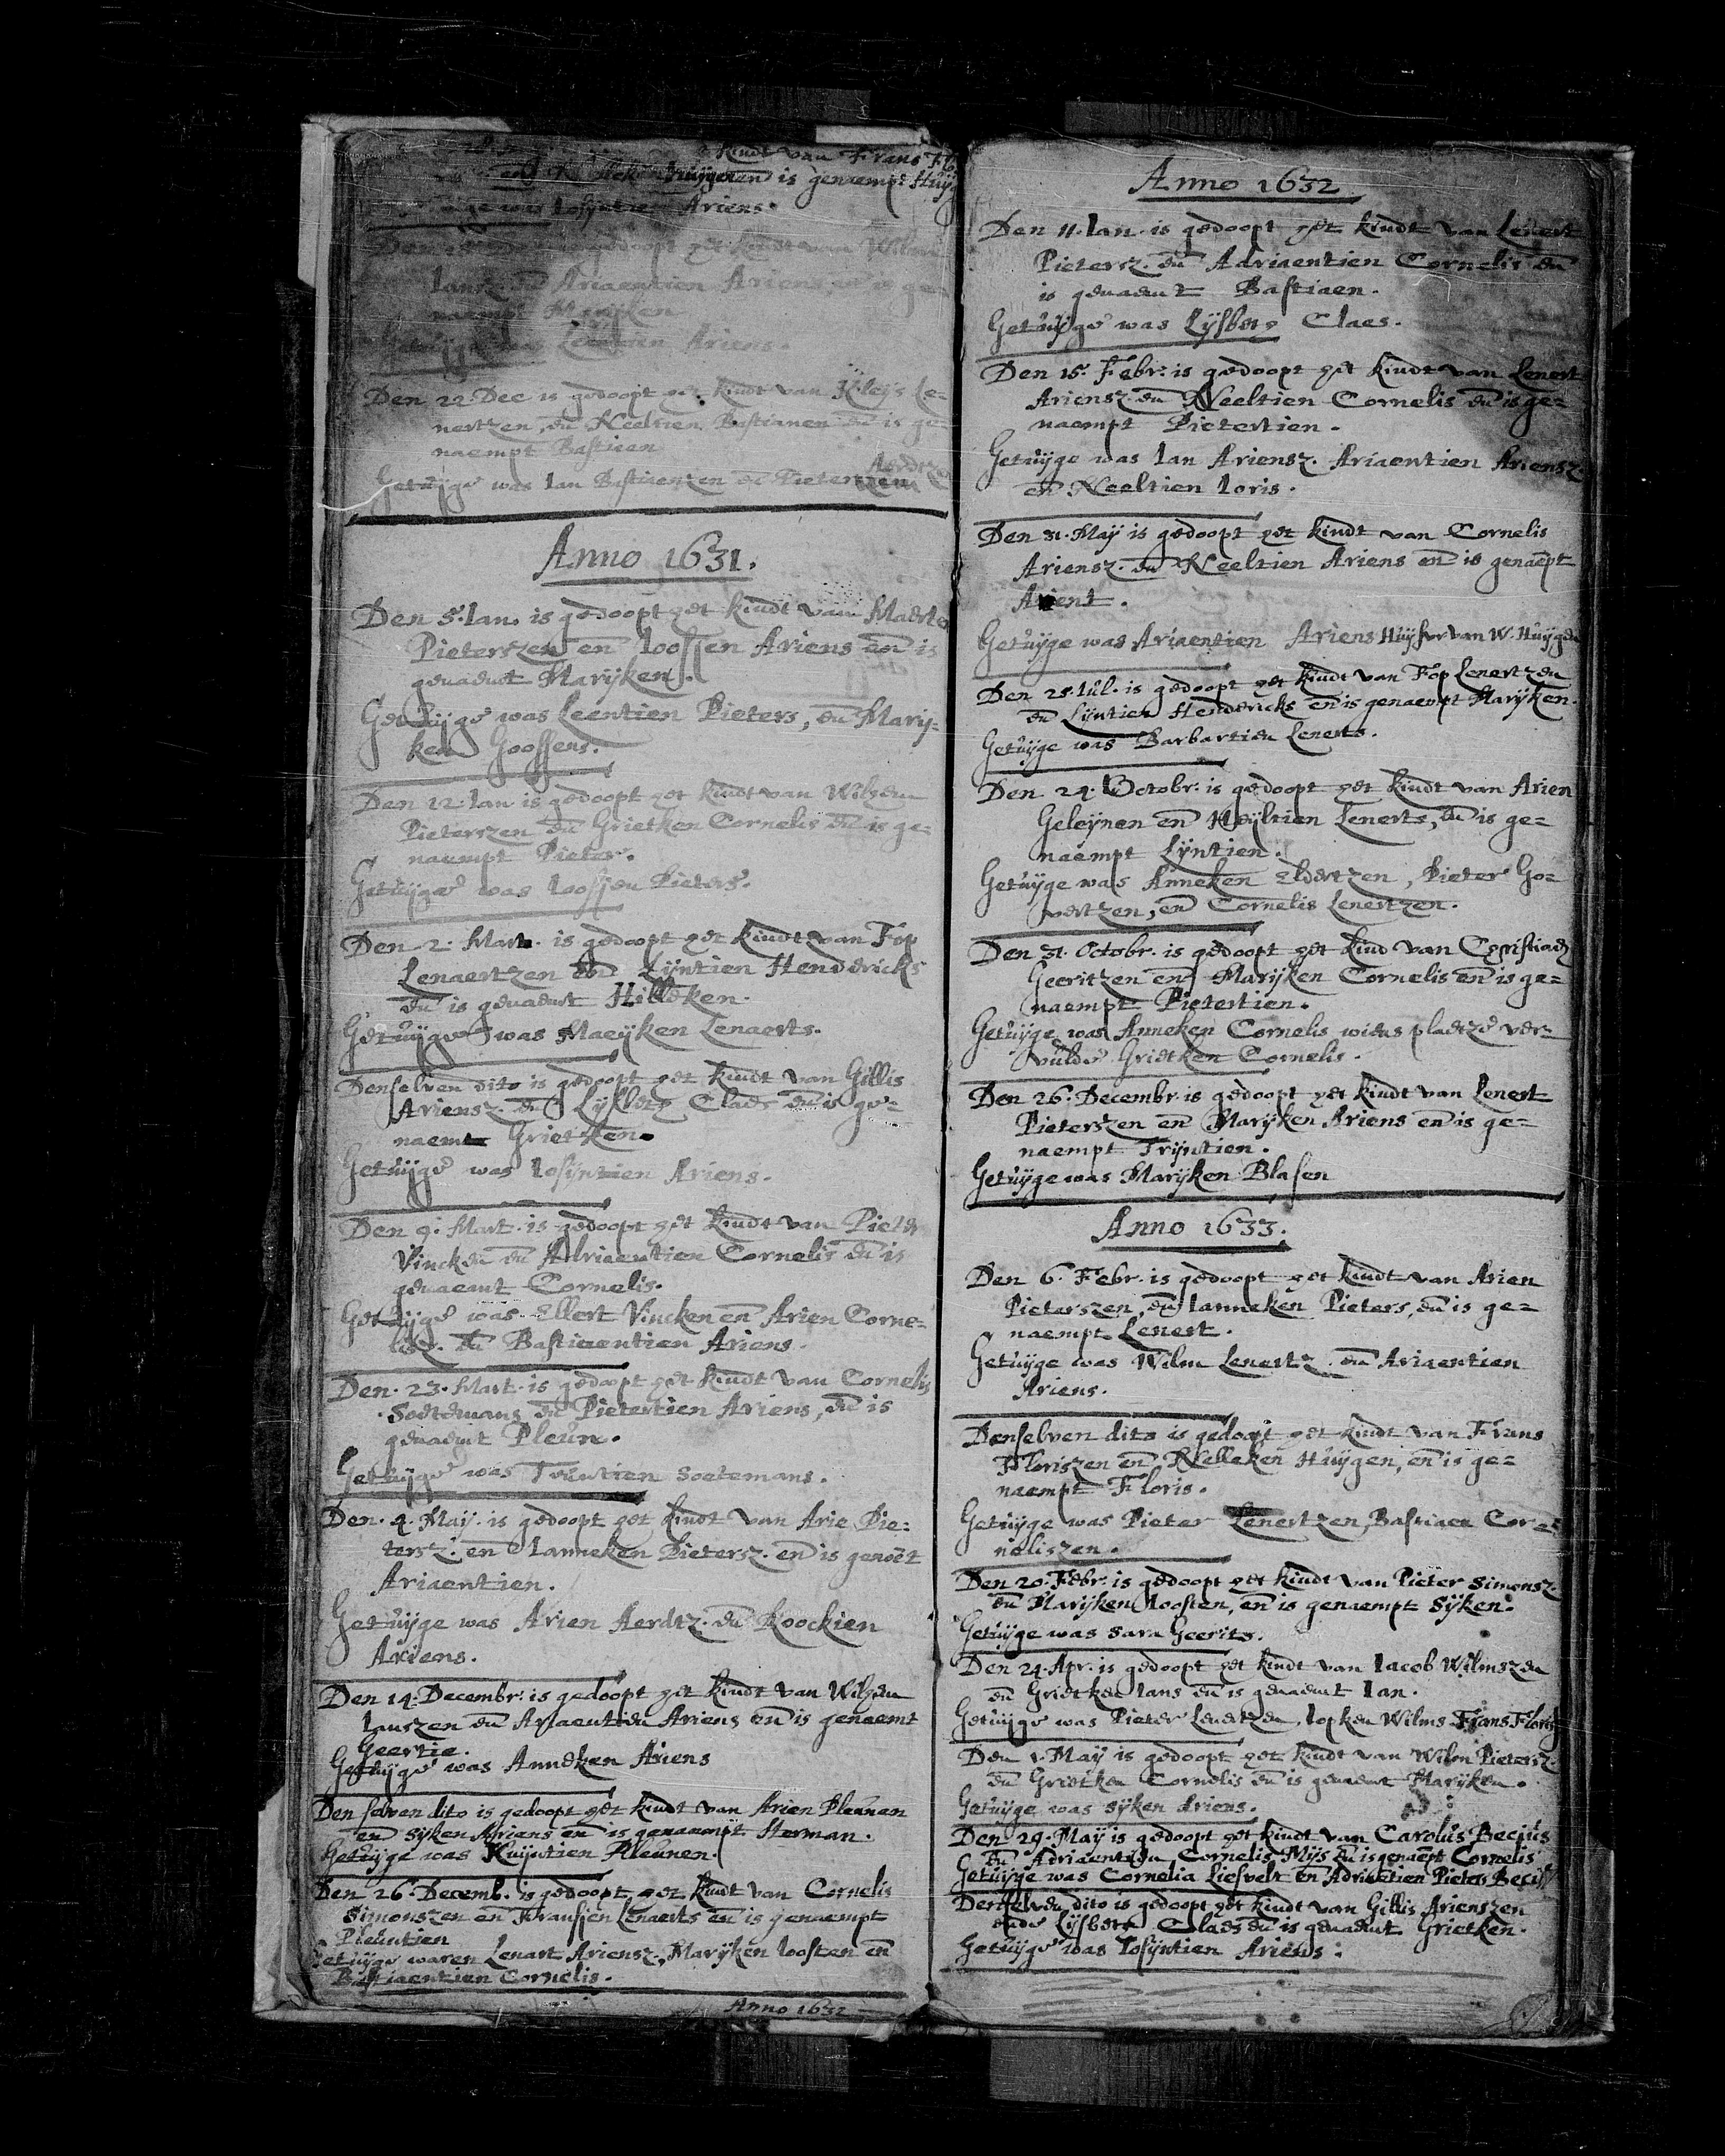 kindt van Frans
Huijgen en is genaempt Huijg
was Iosijntien Ariens.
gedoopt het kindt van Wilm
Iansz. en Ariaentien Ariens en is ge-
naempt
Ariens.
Den 22 Dec is gedoopt het kindt van Kleijs Le-
nertzen, en Neeltien Bastianen en is ge-
naempt Bastiaen
Getuijge was Ian Bastiaenzen en Pieter Aerdtz
Anno 1631.
Den 5. Ian. is gedoopt het kindt van Maerte
Pieterszen en Ioossen Ariens en is
genaemt Marijken.
Getuijge was Leentien Pieters, en Marij-
ken Goossens.
Den 12. Ian is gedoopt het kindt van Wilhem
Pieterszen en Grietken Cornelis en is ge-
naempt Pieter.
Getuijge was Ioosjen Pieters.
Den 2. Mart. is gedoopt het kindt van Fop
Lenaertzen en Lijntien Hendericks
en is genaemt Hilleken.
Getuijge was Maeijken Lenaerts.
Denselven dito is gedoopt het kindt van Gillis
Ariensz. en Lijsbeth Claes en is ge-
naemt Grietken.
Getuijge was Iosijntien Ariens.
Den 9. Mart. is gedoopt het kindt van Pieter
Vincken en Adriaentien Cornelis en is
genaemt Cornelis.
Getuijge was Ellert Vincken en Arien Corne-
lisz. en Bastiaentien Ariens.
Den 23. Mart. is gedoopt het kindt van Cornelis
Soetemans en Pietertien Ariens, en is
genaemt Pleun.
Getuijge was Trintien Soetemans.
Den 4. Maij. is gedoopt het kindt van Arie Pie-
tersz. en Ianneken Pietersz. en is genoet
Ariaentien.
Getuijge was Arien Aerdtz. en Roockien
Ariens.
Den 14. Decembr. is gedoopt het kindt van Wilhem
Ianszen en Ariaentien Ariens en is genaemt
Geertie.
Getuijge was Anneken Ariens
Den selven dito is gedoopt het kindt van Arien Pleunen
en Sijken Ariens en is genaempt Herman.
Getuijge was Kuijntien Pleunen.
Den 26. Decemb. is gedoopt het kindt van Cornelis
Simonszen en Fransjen Lenaerts en is genaempt
Pleuntien
Getuijge waren Lenart Ariensz. Marijken Ioosten en
Bastiaentien Cornelis.
Anno 1632
Anno 1632
Den 11. Ian. is gedoopt het kindt van Lenert
Pietersz. en Adriaentien Cornelis en
is genaemt Bastiaen.
Getuijge was Lijsbeth Claes.
Den 15. Febr. is gedoopt het kindt van Lenert
Ariensz. en Neeltien Cornelis en is ge-
naempt Pietertien.
Getuijge was Ian Ariensz. Ariaentien Ariensz.
en Neeltien Ioris.
Den 31. Maij is gedoopt het kindt van Cornelis
Ariensz. en Neeltien Ariens en is genaept
Arient.
Getuijge was Ariaentien Ariens Huijsvr van W. Huijgen
Den 25. Iul. is gedoopt het kindt van Fop Lenertzen
en Lijntien Hendericks en is genaempt Marijken.
Getuijge was Barbartien Lenerts.
Den 24. Octobr. is gedoopt het kindt van Arien
Geleijnen en Heijltien Lenerts, en is ge-
naempt Lijntien.
Getuijge was Anneken Eldertzen, Pieter Go-
vertzen, en Cornelis Lenertzen.
Den 31. Octobr. is gedoopt het kind van Christiaen
Geeritzen en Marijken Cornelis en is ge-
naempt Pietertien.
Getuijge was Anneken Cornelis wiens plaetze ver-
vulde Grietken Cornelis.
Den 26. Decembr. is gedoopt het kindt van Lenert
Pieterszen en Marijken Ariens en is ge-
naempt Trijntien.
Getuijge was Marijken Blasen
Anno 1633.
Den 6. Febr. is gedoopt het kindt van Arien
Pieterszen, en Ianneken Pieters, en is ge-
naempt Lenert.
Getuijge was Wilm Lenertz. en Ariaentien
Ariens.
Denselven dito is gedoopt het kindt van Frans
Floriszen en Nelleken Huijgen, en is ge-
naempt Floris.
Getuijge was Pieter Lenertzen, Bastiaen Cor-
neliszen.
Den 20. Febr. is gedoopt het kindt van Pieter Simonsz.
en Marijken Ioosten, en is genaempt Sijken.
Getuijge was Sara Geerits.
Den 24. Apr. is gedoopt het kindt van Iacob Wilmszen
en Grietken Ians en is genaemt Ian.
Getuijge was Pieter Lenertzen, Iopken Wilms Frans Florisz
Den 1. Maij is gedoopt het kindt van Wilm Pietersz.
en Grietken Cornelis en is genaemt Marijken.
Getuijge was Sijken Ariens.
Den 29. Maij is gedoopt het kindt van Carolus Becius
en Adriaentien Cornelis Mijs en is genaept Cornelis
Getuijge was Cornelia Liesvelt en Adriaetien Pieters Becius
Denselven dito is gedoopt het kindt van Gillis Arienszen
ende Lijsbeth Claes en is genaemt Grietken.
Getuijge was Iosijntien Ariens.